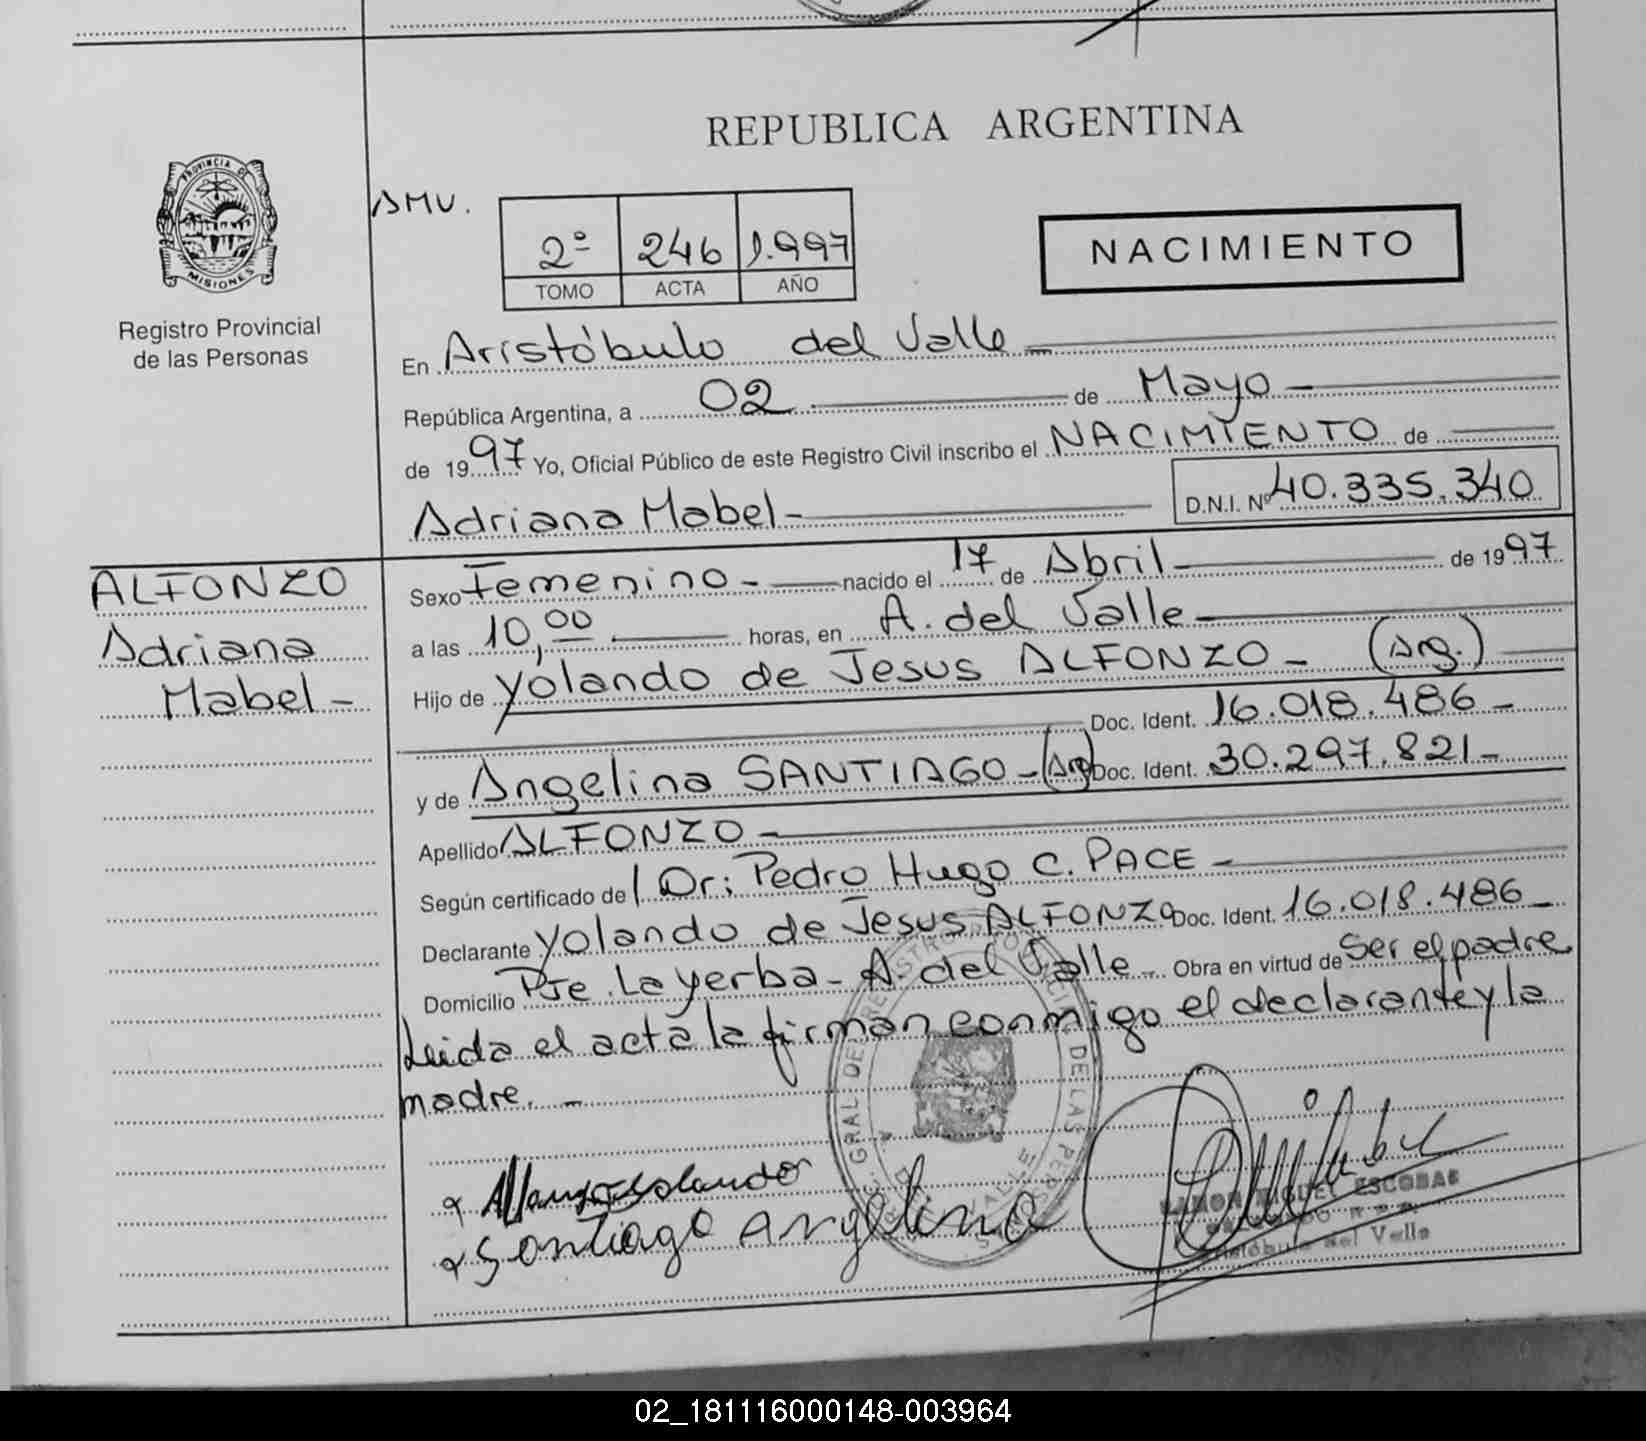 REPUBLICA ARGENTINA
PROVINCIA DE
MISIONES
Registro Provincial
de las Personas
AMV.
2º 246 1.997
TOMO ACTA AÑO
NACIMIENTO
En Aristóbulo del Valle
República Argentina, a 02 de Mayo
de 1997 Yo, Oficial Público de este Registro Civil inscribo el NACIMIENTO de
Adriana Mabel- D.N.I. Nº 40.335.340
ALFONZO
Adriana
Mabel-
Sexo Femenino- nacido el 17 de Abril- de 1997
a las 10,00 horas, en A. del Valle
Hijo de Yolando de Jesus ALFONZO- (Arg.)
Doc. Ident. 16.018.486-
y de Angelina SANTIAGO-(Arg) Doc. Ident. 30.297.821-
Apellido ALFONZO-
Según certificado del Dr: Pedro Hugo C. PACE-
Declarante Yolando de Jesus ALFONZO Doc. Ident. 16.018.486-
Domicilio Pje. La yerba- A. del Valle- Obra en virtud de Ser el padre
Leida el acta la firman conmigo el declarante y la
madre.-
Alfonzo Yolando
Santiago Angelina
GRAL DE DE LAS VALLE
RAMON MIGUEL ESCOBAR
del Valle
02_181116000148-003964